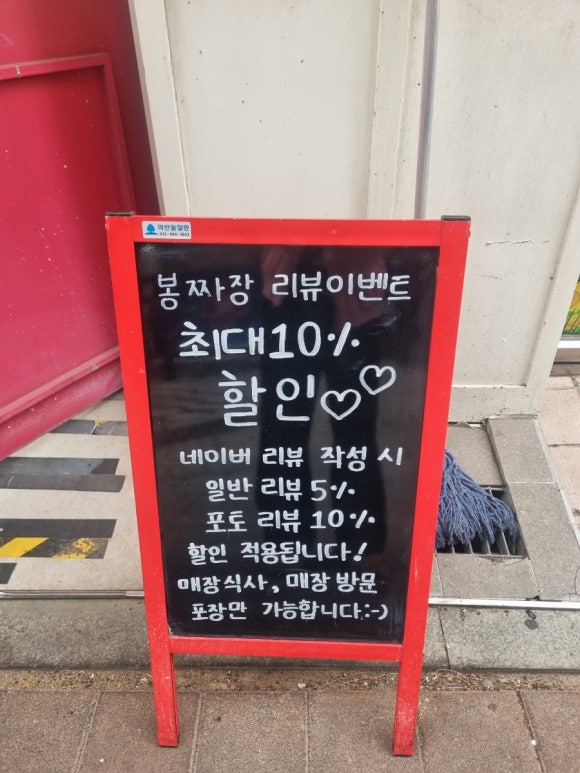 파란들칠판
봉짜장 리뷰이벤트
최대10%
할인♡♡
네이버 리뷰 작성 시
일반 리뷰 5%
포토 리뷰 10%
할인 적용됩니다!
매장식사, 매장 방문
포장만 가능합니다:-)